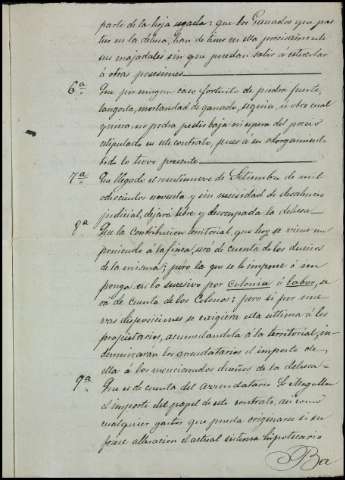 parte de la hoja usada: que los Ganados que pas-
ten en la dehesa, han de tener en ella precisamente
su majadales sin que puedan salir á estercolar
á otras posesiones
6ª Que por ningun caso fortuito de piedra fuerte,
langosta, mortandad de ganado, sequia, ú otro cual
quiera no podrá pedir baja ni espera del precio
estipulado en este contrato, pues á su otorgamiento
todo lo tuvo presente
7ª Que llegado el veintinueve de Setiembre de mil
ochocientos noventa y sin necesidad de desahucio
judicial, dejará libre y desocupada la dehesa
8ª Que la contribucion territorial, que hoy se viene im
poniendo á la finca, será de cuenta de los dueños
de la misma; pero la que se le impone ó im
ponga en lo sucesivo por Colonia ó labor, se
rá de cuenta de los Colonos; pero si por nue
vas disposiciones se exigiera esta ultima á los
propietarios, acumulandola á la territorial, in-
demnizaran los arrendatarios el importe de
ella á los mencionados dueños de la dehesa
9ª Que es de cuenta del arrendatario
el importe del papel de este contrato, asi como
cualquier gastos que pueda originarse si su
friese alteracion el actual sistema hipotecario